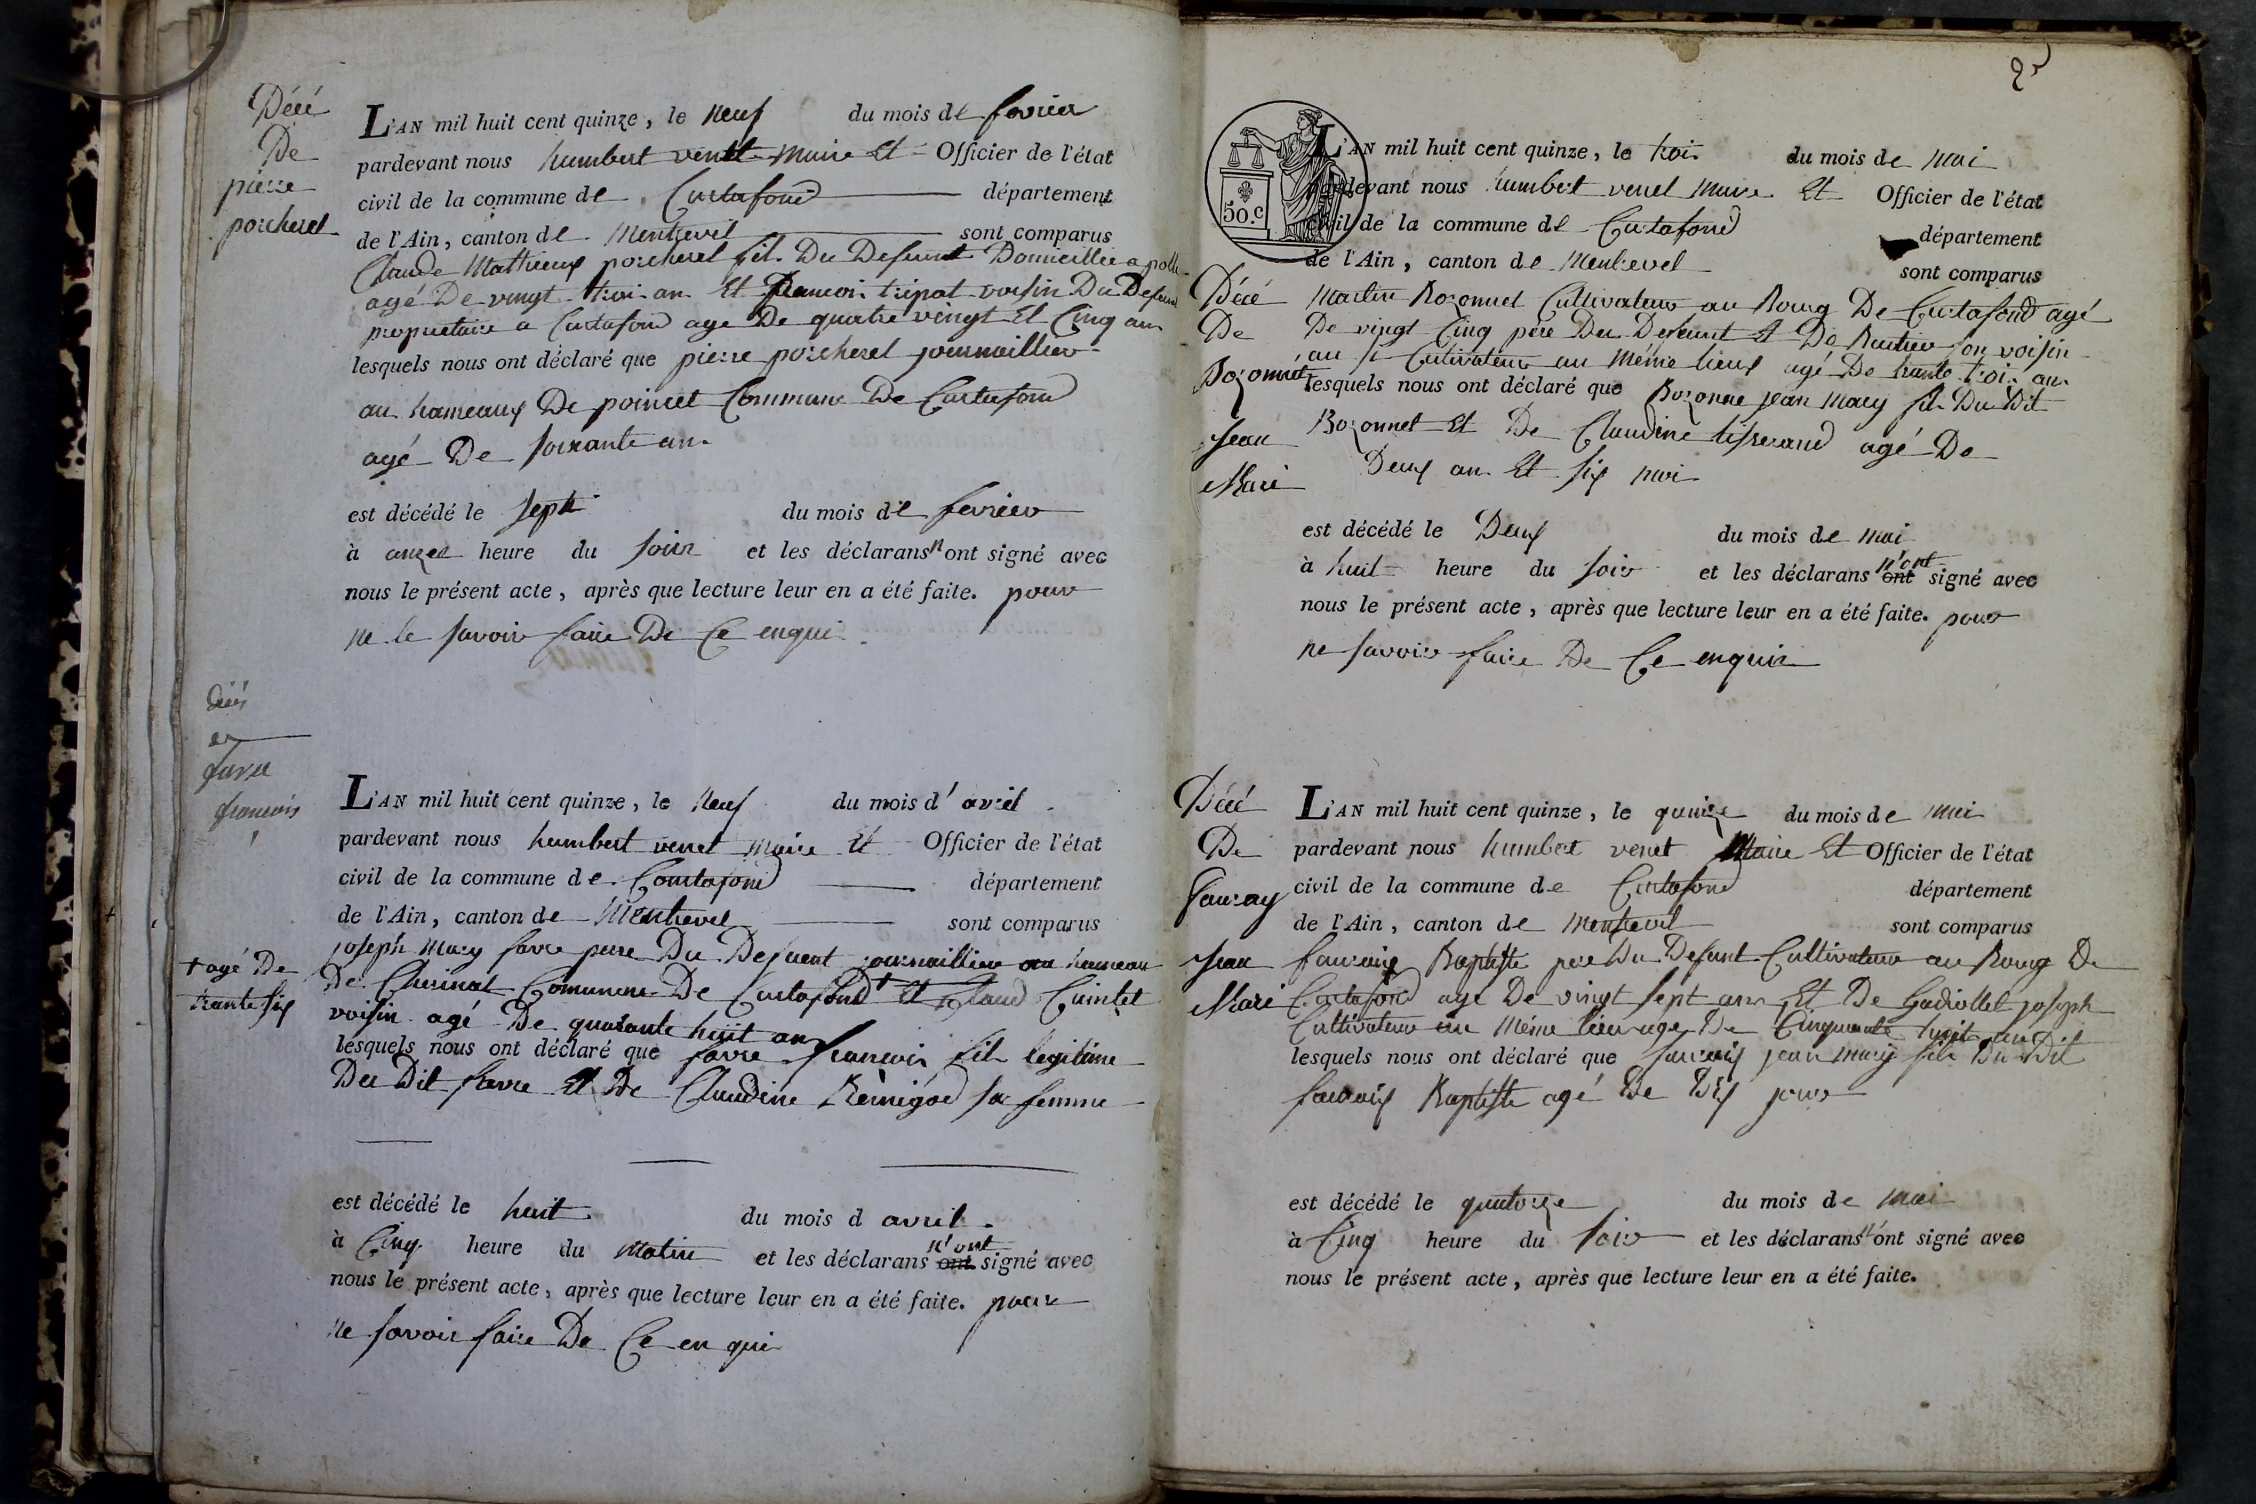 Décé
De
pierre
porcherel
L'AN mil huit cent quinze, le neuf du mois de fevrier
pardevant nous humbert venet maire Et Officier de l'état
civil de la commune de Curtafond département
de l'Ain, canton de Montrevel sont comparus
Claude Mathieux porcherel fil Du Defunt Domicillie a
agé De vingt troi an Et francoi tripot voisin Du Defunt
propriétaire a Curtafond age De quatre vingt Et Cinq an
lesquels nous ont déclaré que pierre porcherel journaillier
au hameaux De poincet Commune De Curtafond
agé De soixante an
est décédé le sept du mois de fevrier
à onzee heure du soir et les déclarans n'ont signé avec
nous le présent acte, après que lecture leur en a été faite. pour
ne le savoir faire De Ce enqui
décés
de
favre
francois
L'AN mil huit cent quinze, le neuf du mois d'avril
pardevant nous humbert venet maire Et Officier de l'état
civil de la commune de Courtafond département
de l'Ain, canton de Montrevel sont comparus
joseph mary favre pere Du Defuent journaillier au hameau
+ agé De
trante six
De Cherinal Commune De Curtafond + Et Claud Cuintet
voisin agé De quarante huit an
lesquels nous ont déclaré que favre francoi fil légitime
Du Dit favre Et De Claudine Rémigod sa femme
est décédé le huit du mois d avril
à Cinq heure du matin et les déclarans ont n'ont signé avec
nous le présent acte, après que lecture leur en a été faite. pour
ne savoir faire De Ce en qui
2
50.c
L'AN mil huit cent quinze, le troi du mois de mai
pardevant nous humbert venet maire Et Officier de l'état
civil de la commune de Curtafond département
de l'Ain, canton de Montrevel sont comparus
Décé
De
Bozonnet
Jean
Mari
Martin Bozonnet Cultivateur au Bourg De Curtafond agé
De vingt Cinq père Du Defeunt Et De son voisin
au si Cultivateur au même lieux agé De trante troi an
lesquels nous ont déclaré que Bozonne jean mary fil Du Dit
Bozonnet Et De Claudine tisserand agé De
Deux an Et six moi
est décédé le Deux du mois de mai
à huit heure du soir et les déclarans ont n'ont signé avec
nous le présent acte, après que lecture leur en a été faite. pour
ne savoir faire De Ce enquir
Décé
De
Jean
Mari
L'AN mil huit cent quinze, le quinze du mois de mai
pardevant nous humbert venet Maire Et Officier de l'état
civil de la commune de Curtafond département
de l'Ain, canton de Montrevel sont comparus
Baptiste pere Du Defunt Cultivateur au Bourg De
Curtafond age De vingt sept ans Et De Gadiollet joseph
Cultivateur au même lieu age De Cinquante huit an
lesquels nous ont déclaré que jean mary fils Du Dit
Baptiste agé De Dix jour
est décédé le quatorze du mois de mai
à Cinq heure du soir et les déclarans n'ont signé avec
nous le présent acte, après que lecture leur en a été faite.